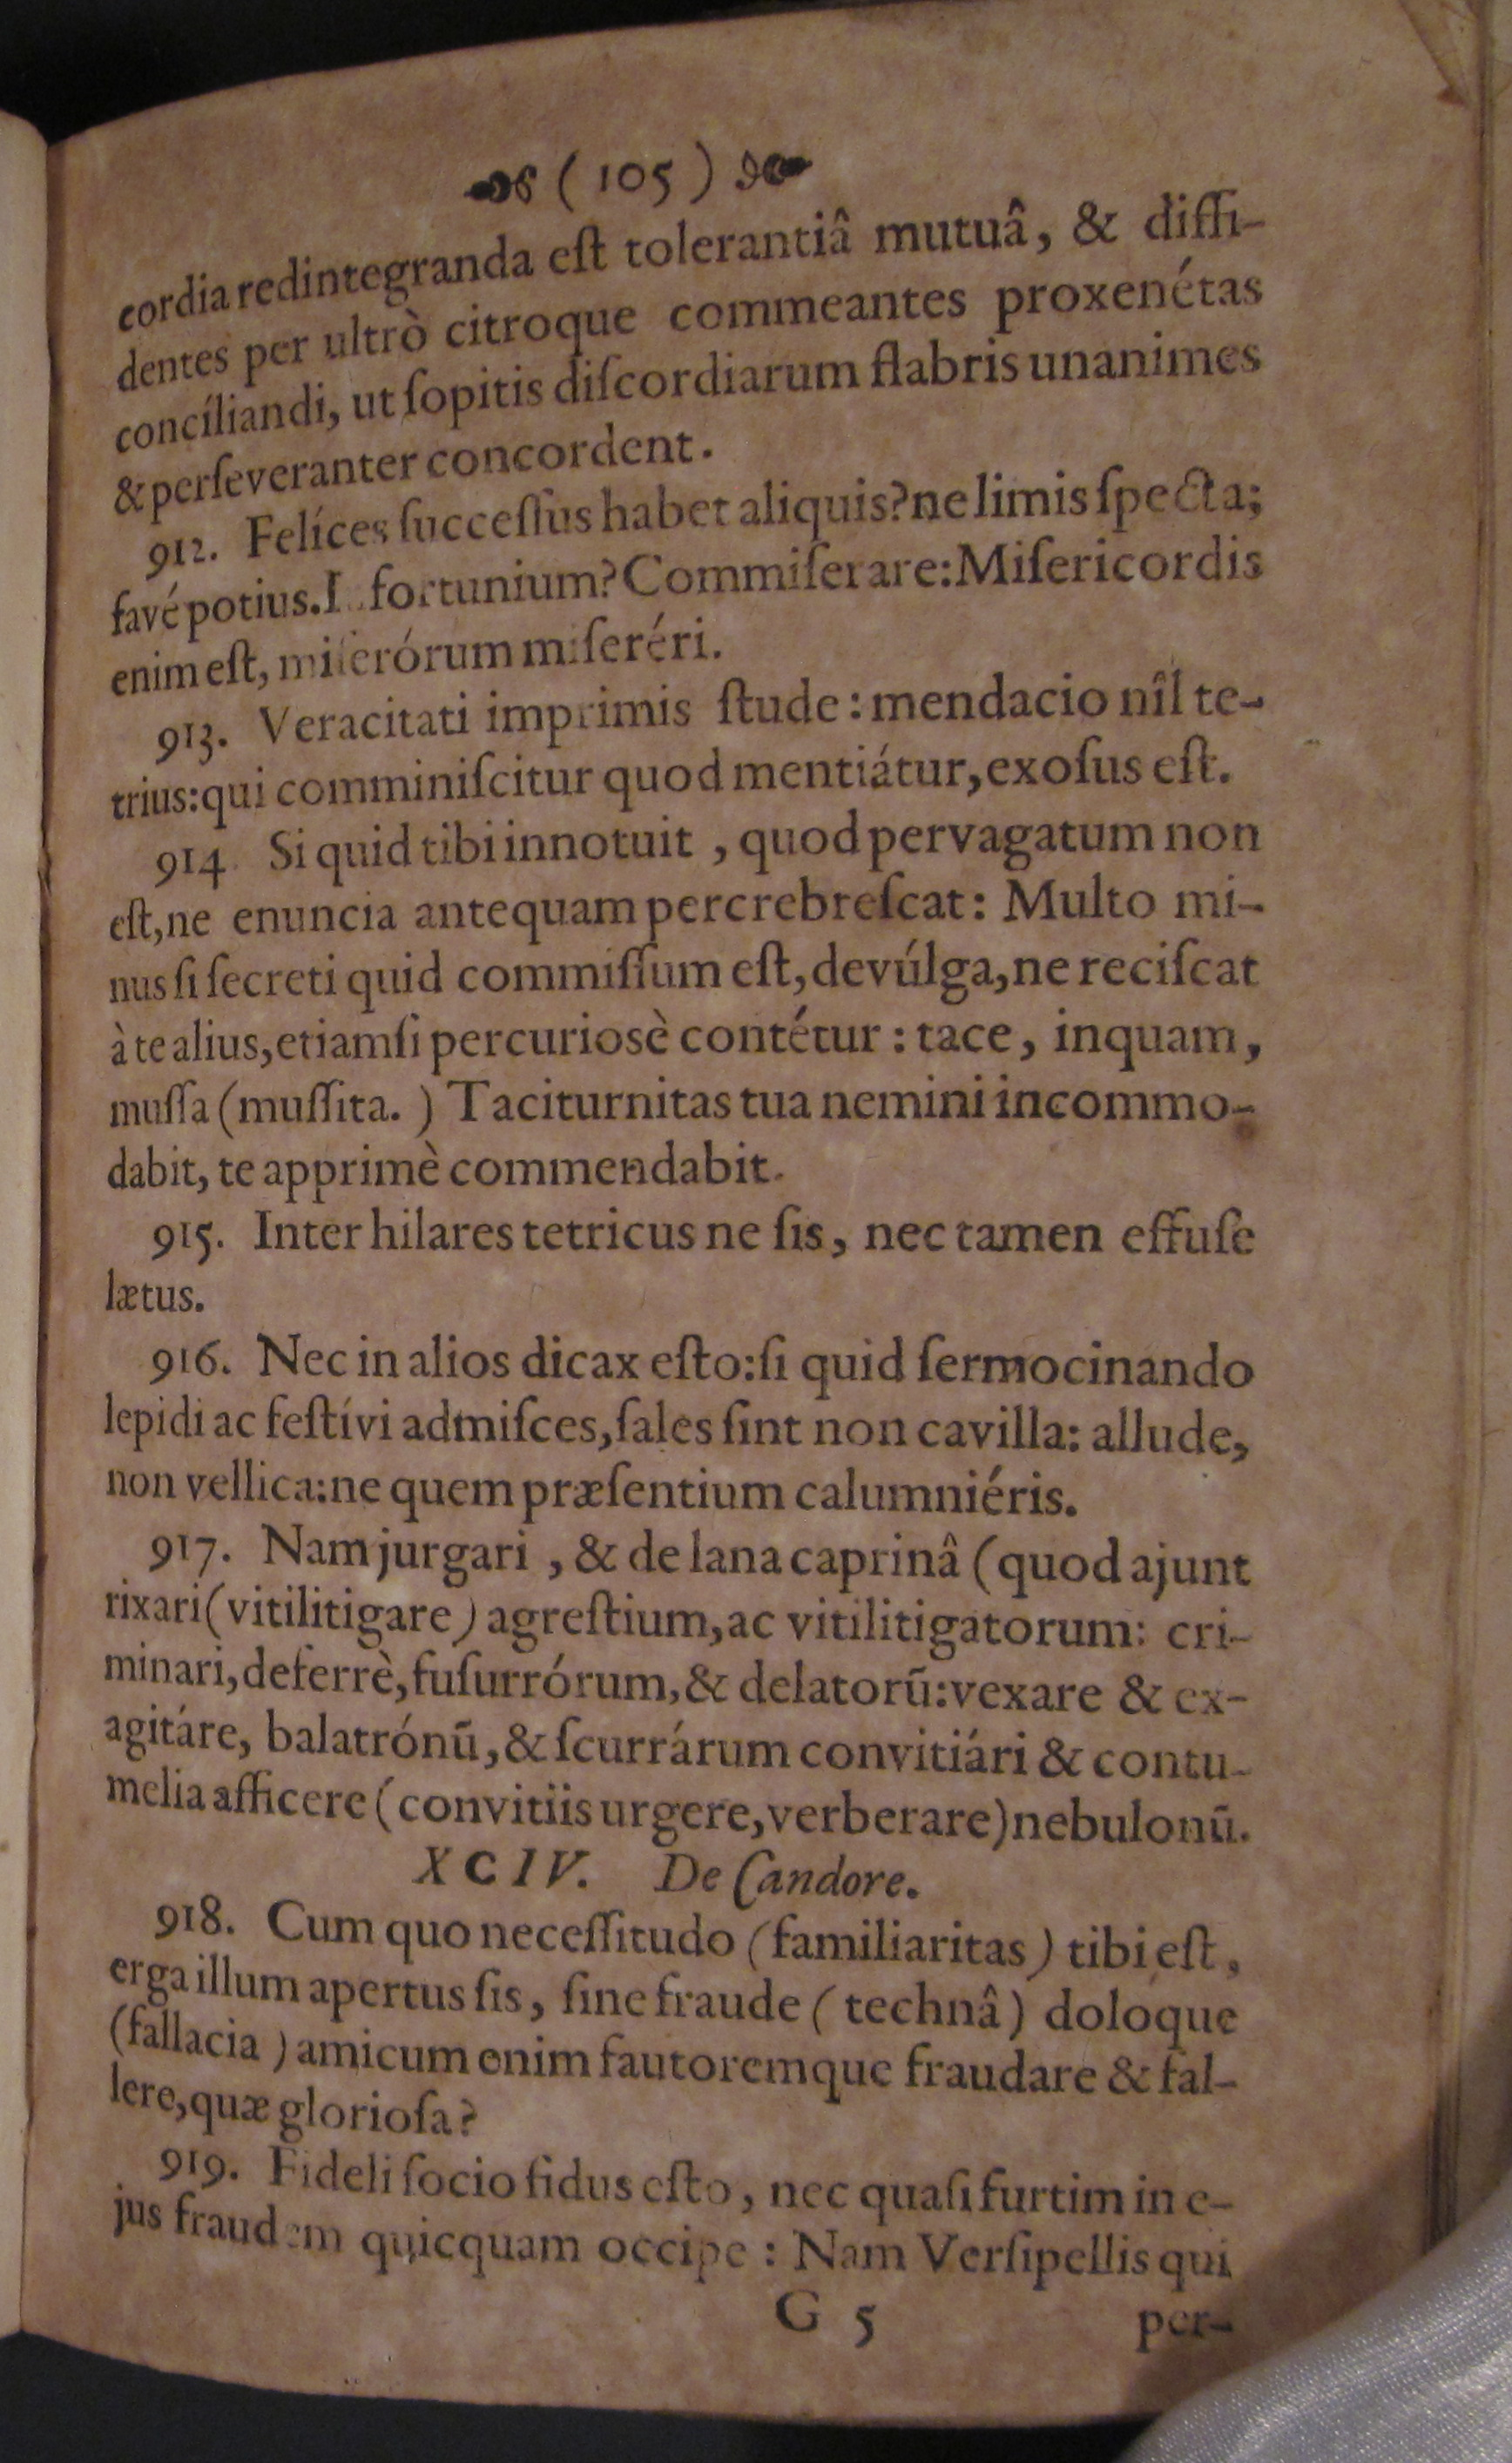 ( 105 )
cordia redintegranda eſt tolerantiâ mutuâ, & diſſi-
dentes per ultrò citroque commeantes proxenétas
concíliandi, ut ſopitis diſcordiarum flabris unanimes
& perſeveranter concordent.
912. Felíces ſucceſſus habet aliquis? ne limis ſpecta;
favé potius. I fortunium? Commiſerare: Miſericordis
enim eſt, miſerórum miſeréri.
913. Veracitati imprimis ſtude: mendacio nîl te-
trius: qui comminiſcitur quod mentiátur, exoſus eſt.
914. Si quid tibi innotuit, quod pervagatum non
eſt, ne enuncia antequam percrebreſcat: Multo mi-
nus ſi ſecreti quid commiſſum eſt, devúlga, ne reciſcat
à te alius, etiamſi percuriosè contétur: tace, inquam,
muſſa (muſſita.) Taciturnitas tua nemini incommo-
dabit, te apprimè commendabit.
915. Inter hilares tetricus ne ſis, nec tamen effuſe
lætus.
916. Nec in alios dicax eſto: ſi quid ſermocinando
lepidi ac feſtívi admiſces, ſales ſint non cavilla: allude,
non vellica: ne quem præſentium calumniéris.
917. Nam jurgari, & de lana caprinâ (quod ajunt
rixari (vitilitigare) agreſtium, ac vitilitigatorum: cri-
minari, deferrè, ſuſurrórum, & delatorū: vexare & ex-
agitáre, balatrónū, & ſcurrárum convitiári & contu-
melia afficere (convitiis urgere, verberare) nebulonū.
XCIV. De Candore.
918. Cum quo neceſſitudo (familiaritas) tibi eſt,
erga illum apertus ſis, ſine fraude (technâ) doloque
(fallacia) amicum enim fautoremque fraudare & fal-
lere, quæ glorioſa?
919. Fideli ſocio fidus eſto, nec quaſi furtim in e-
jus fraudem quicquam occipe: Nam Verſipellis qui
G 5
per-